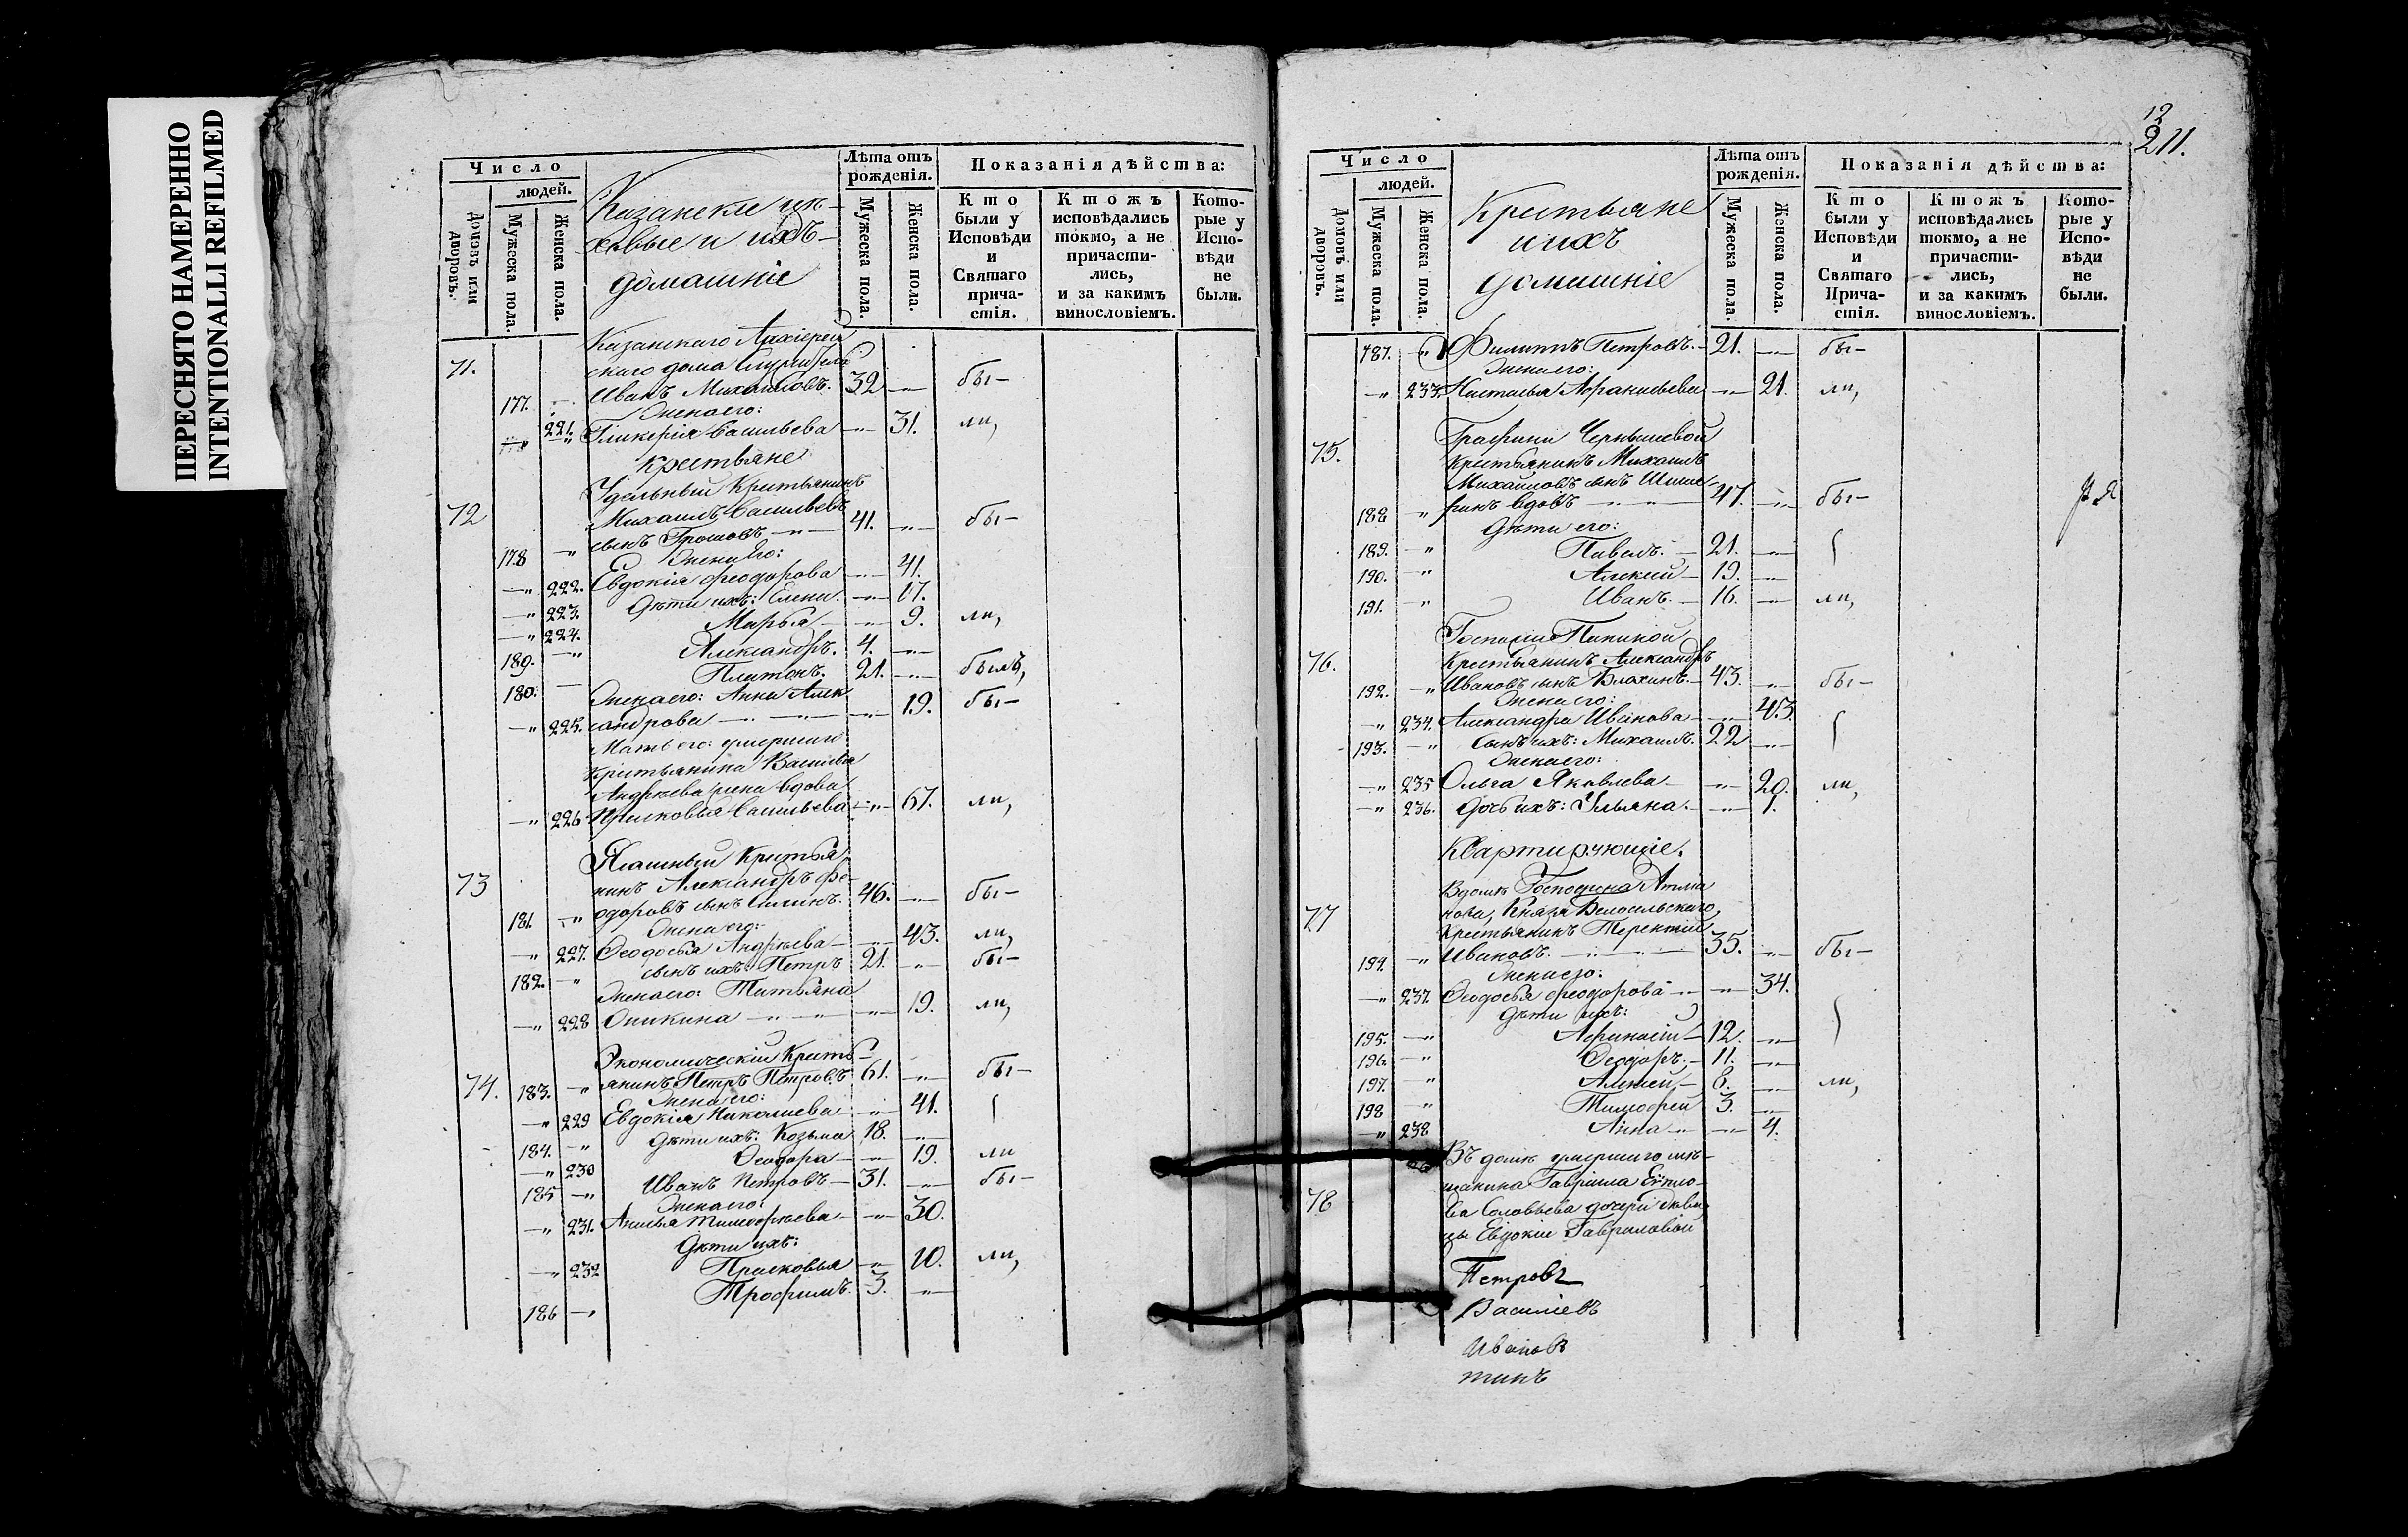 ПЕРЕСНЯТО НАМЕРЕННО
INTENTIONALLI REFILMED
Число
людей.
Домовъ или дворовъ.
Мужеска пола.
Женска пола.
Казанскіе
и ихъ
домашніе
Лѣта отъ рожденія.
Мужеска пола.
Женска пола.
Показанія дѣйства:
Кто были у Исповѣди и Святаго причастія.
Ктожъ исповѣдались токмо, а не причастились, и за какимъ винословіемъ.
Которые у Исповѣди не были.
Казанскаго Архіерей
71. скаго дома Служитель
177. Иванъ Михайловъ. 32 бы-
Жена его:
221. Гликерія Васильева 31. ли,
Крестьяне
Удѣльный Крестьянинъ
72 Михаилъ Васильевъ
178 сынъ Грошовъ 41. бы-
Жена его:
222. Евдокія Ѳеодорова 41.
223. Дѣти ихъ: Елена. 17.
224. Марья 9. ли,
189. Александръ. 4.
180. Платонъ. 21. былъ,
Жена его: Анна Алек
225. сандрова 19. бы-
Мать его: умершаго
Крестьянина Василья
Андреева жена вдова
226 Прасковья Васильева 67. ли,
Крестья
73 нинъ Александръ Ѳе-
181. одоровъ сынъ Силинъ. 46. бы-
Жена его:
227. Ѳеодосья Андреева 43. ли,
182. сынъ ихъ: Петръ 21. бы-
Жена его: Татьяна
228 Оникина 19. ли,
Экономическій Кресть-
74. 183. янинъ Петръ Петровъ 61. бы-
Жена его:
229 Евдокія Николаева 41.
184. Дѣти ихъ: Козьма 18.
230 Ѳеодора 19. ли
185 Иванъ Петровъ 31. бы-
Жена его:
231. Анисья Тимоѳеева 30.
Дѣти ихъ:
232 Прасковья 10. ли,
186 Трофимъ. 3.
12
211.
Число
людей.
Домовъ или дворовъ.
Мужеска пола.
Женска пола.
Крестьяне
и ихъ
домашніе
Лѣта отъ рожденія.
Мужеска пола.
Женска пола.
Показанія дѣйства:
Кто были у Исповѣди и Святаго Причастія.
Ктожъ исповѣдались токмо, а не причастились, и за какимъ винословіемъ.
Которые у Исповѣди не были.
187. Филиппъ Петровъ. 21. бы-
Жена его:
233. Настасья Афанасьева 21. ли,
Графини Чернышевой
75. Крестьянинъ Михаилъ
Михайловъ сынъ
188 вдовъ 47. бы-
Дѣти его:
189. Павелъ. 21.
190. Алексій 19.
191. Иванъ. 16. ли,
Госпожи
76. Крестьянинъ Александръ
192. Ивановъ сынъ Блохинъ. 43. бы-
Жена его:
234. Александра Иванова 43.
193. Сынъ ихъ: Михаилъ. 22
Жена его:
235 Ольга Яковлева 20. ли,
236. Дочь ихъ: Ульяна. 1.
Квартирующіе.
Въ домѣ Господина
77 Князя Белосельскаго,
Крестьянинъ Терентій
194. Ивановъ. 35. бы-
Жена его:
237. Ѳеодосья Ѳеодорова 34.
Дѣти ихъ:
195. Афанасій 12.
196. Ѳеодоръ. 11.
197. Алексей 6. ли,
198 Тимоѳей 3.
238 Анна 4.
Въ домѣ умершаго мѣ-
щанина Гавріила
78 ва Соловьева дочери дѣви-
цы Евдокіи Гавриловой
Петровъ
Василіевъ
Ивановъ